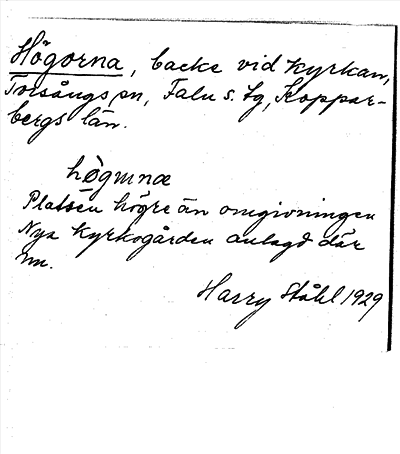 Högorna, backe vid kyrkan,
Torsångs sn, Falu s. tg, Koppar-
bergs län.
högunæ
Platsen högre än omgivningen
Nya kyrkogården anlagd där
nu.
Harry Ståhl 1929